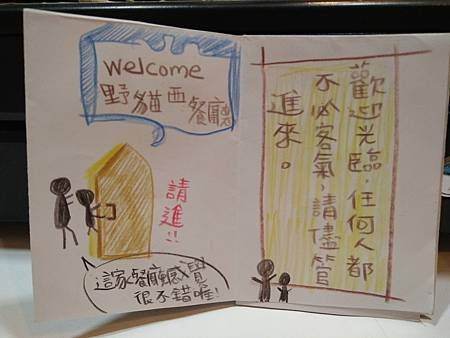 welcome
野貓西餐廳
請進!!
這家餐廳感覺
很不錯喔!
歡迎光臨，任何人都
不必客氣，請儘管
進來。